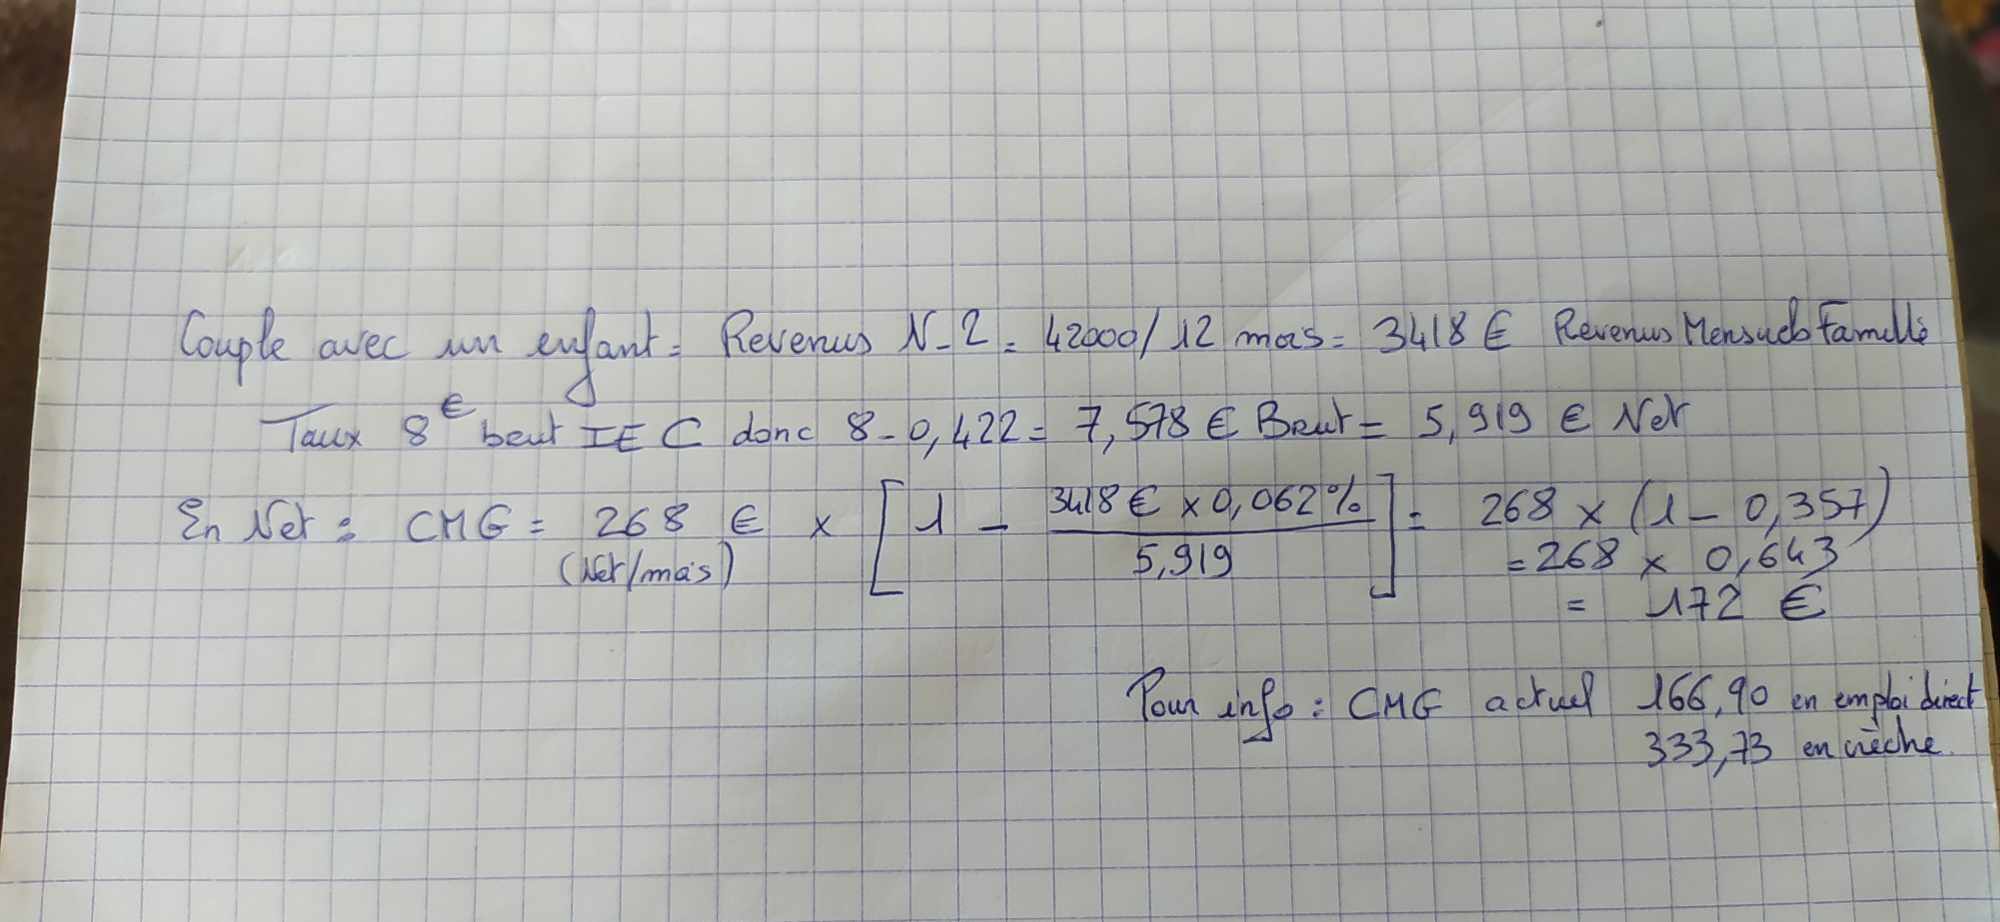 Couple avec un enfant = Revenus N-2 = 42000/12 mois = 3418 € Revenus Mensuels Famille
Taux 8€ brut IEC donc 8-0,422 = 7,578 € Brut = 5,919 € Net
En Net : CMG = 268 € x [1 - 3418 € x 0,062% / 5,919] = 268 x (1 - 0,357)
(Net/mois)
= 268 x 0,643
= 172 €
Pour info : CMG actuel 166,90 en emploi direct
333,73 en crèche.